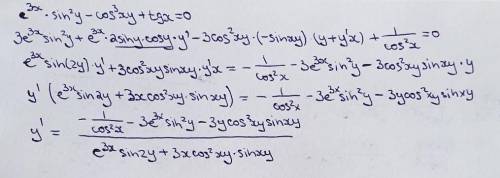 e^{3x} · sin²y − cos³xy + tgx = 0
3e^{3x} sin²y + e^{3x} · 2siny · cosy · y' − 3cos²xy · (−sinxy) (y + y'x) + \frac{1}{cos²x} = 0
e^{3x} sin(2y) · y' + 3cos²xy sinxy · y'x = − \frac{1}{cos²x} − 3e^{3x} sin²y − 3cos²xy sinxy · y
y' (e^{3x} sin2y + 3x cos²xy · sinxy) = − \frac{1}{cos²x} − 3e^{3x} sin²y − 3y cos²xy sinxy
y' = \frac{−\frac{1}{cos²x} − 3e^{3x} sin²y − 3y cos²xy sinxy}{e^{3x} sin2y + 3x cos²xy · sinxy}